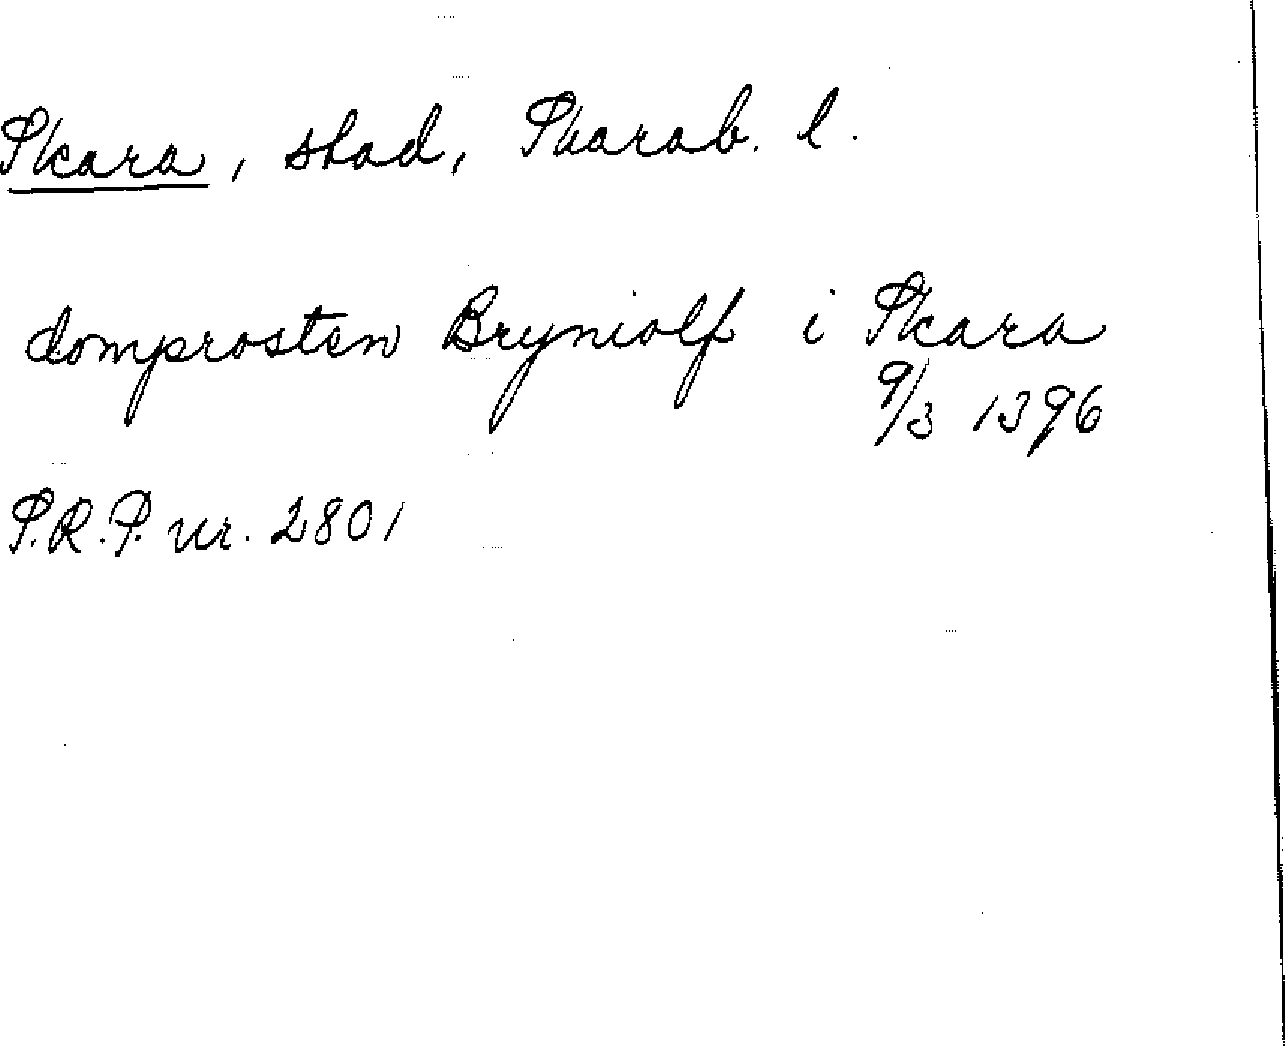 Skara, stad, Skarab. l.
domprosten Bryniolf i Skara
9/3 1396
S.R.P. nr. 2801